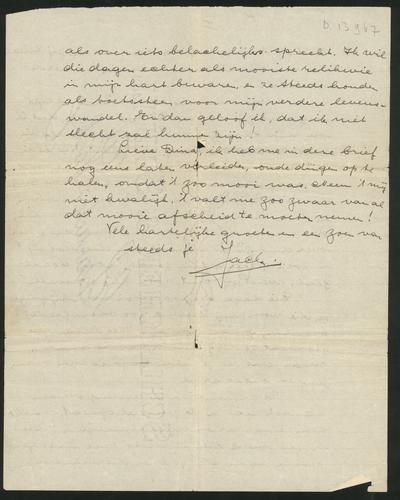 D. 13967
als over iets belachelijks spreekt. Ik wil
die dagen echter als mooiste relikwie
in mijn hart bewaren, en ze steeds houden
als toetssteen, voor mijn verdere levens-
wandel. En dan geloof ik, dat ik niet
slecht zal kunnen zijn!
Lieve Dina, ik heb me in deze brief
nog eens laten verleiden, oude dingen op te
halen, omdat 't zoo mooi was. Neem 't mij
niet kwalijk, 't valt me zoo zwaar van al
dat moois afscheid te moeten nemen!
Vele hartelijke groeten en een zoen van
steeds je Jack.